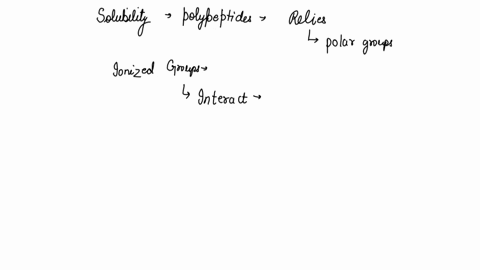 Solubility → polypeptides → Relies
↳ polar groups
Ionized Groups →
↳ Interact →